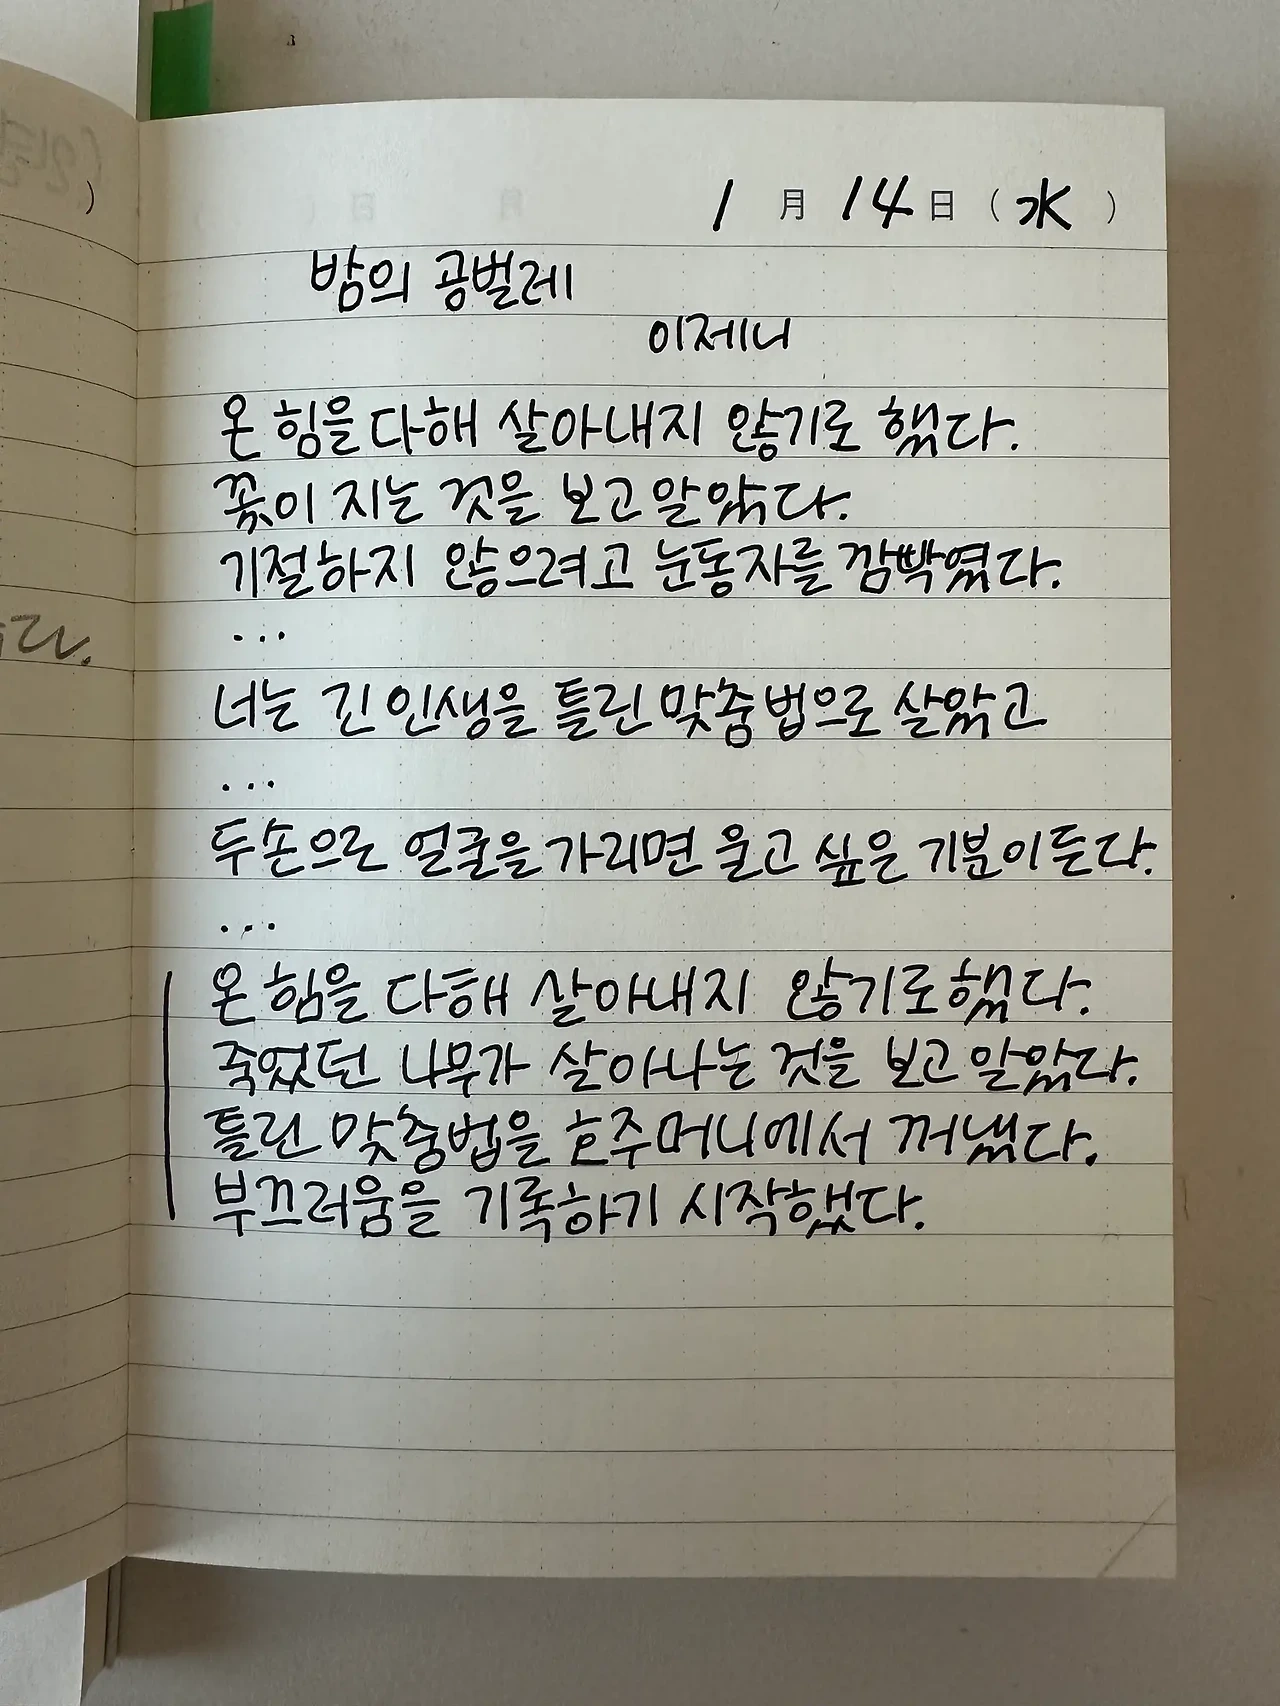 1 月 14 日 ( 水 )
밤의 공벌레
이제니
온 힘을 다해 살아내지 않기로 했다.
꽃이 지는 것을 보고 알았다.
기절하지 않으려고 눈동자를 깜빡였다.
...
너는 긴 인생을 틀린 맞춤법으로 살았고
...
두손으로 얼굴을 가리면 울고 싶은 기분이 든다.
...
온 힘을 다해 살아내지 않기로 했다.
죽었던 나무가 살아나는 것을 보고 알았다.
틀린 맞춤법을 호주머니에서 꺼냈다.
부끄러움을 기록하기 시작했다.